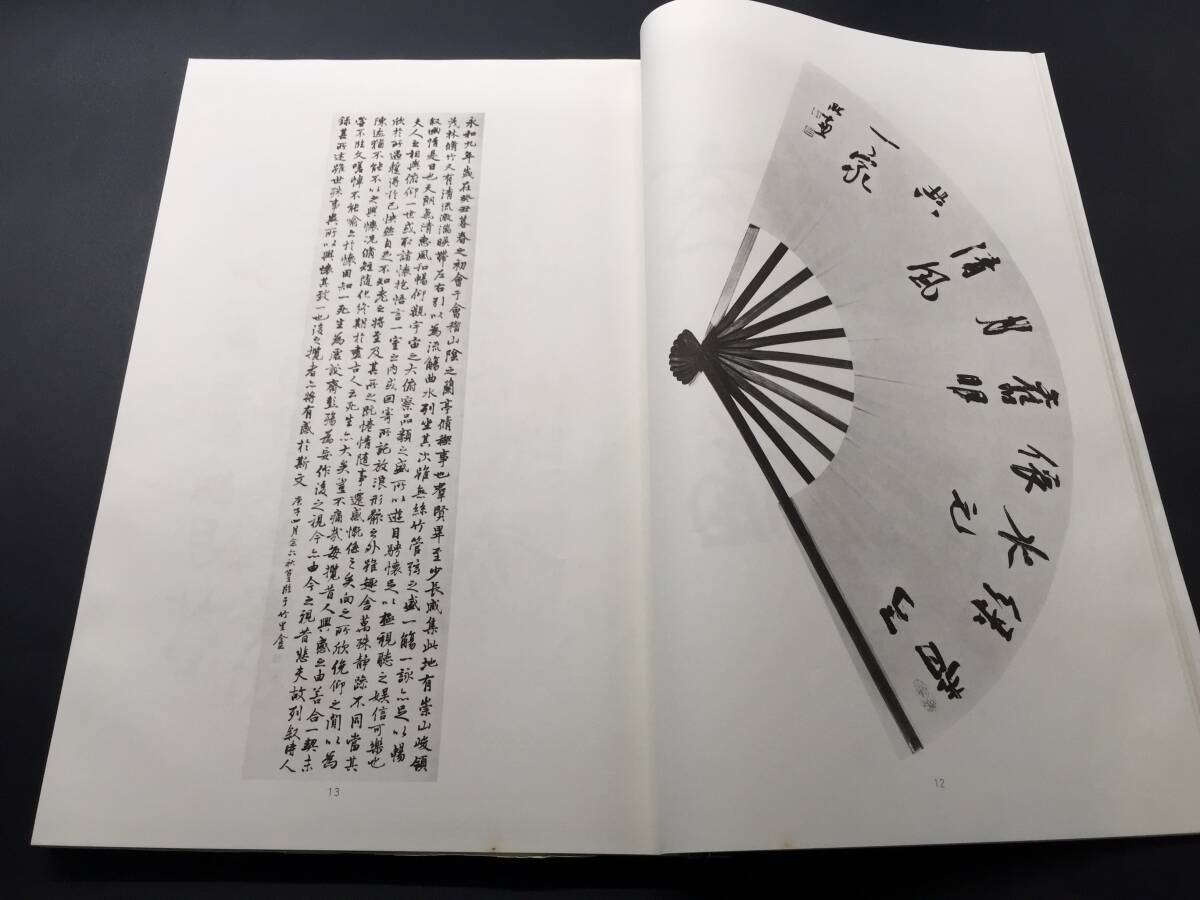 清風
共
一家
12
永和九年歲在癸丑暮春之初會于會稽山陰之蘭亭脩稧事也羣賢畢至少長咸集此地有崇山峻領
茂林脩竹又有清流激湍暎帶左右引以為流觴曲水列坐其次雖無絲竹管弦之盛一觴一詠亦足以暢
叙幽情是日也天朗氣清惠風和暢仰觀宇宙之大俯察品類之盛所以遊目騁懷足以極視聽之娛信可樂也
夫人之相與俯仰一世或取諸懷抱悟言一室之內或因寄所託放浪形骸之外雖趣舍萬殊静躁不同當其
欣於所遇蹔得於己怏然自足不知老之將至及其所之既惓情隨事遷感慨係之矣向之所欣俛仰之閒以為
陳迹猶不能不以之興懷況脩短隨化終期於盡古人云死生亦大矣豈不痛哉每攬昔人興感之由若合一契未
嘗不臨文嗟悼不能喻之於懷固知一死生為虛誕齊彭殤為妄作後之視今亦由今之視昔悲夫故列叙時人
錄其所述雖世殊事異所以興懷其致一也後之攬者亦將有感於斯文 庚子四月
13